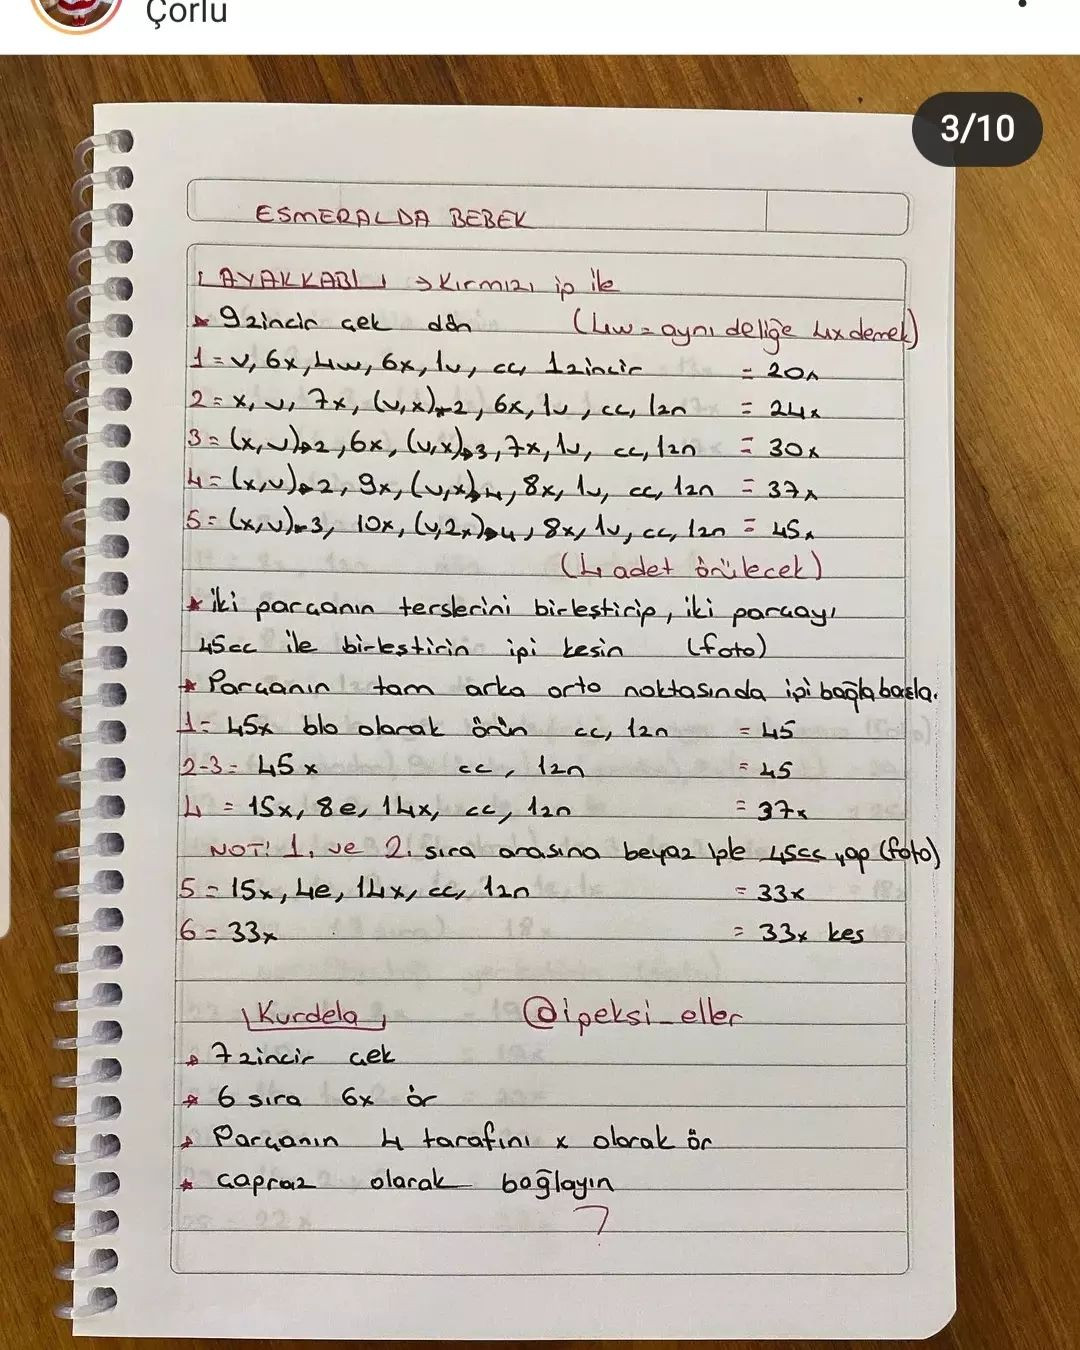 Çorlu
3/10
ESMERALDA BEBEK
AYAKKABI → Kırmızı ip ile
* 9zincir çek dön (4w = aynı deliğe 4x demek)
1 = v, 6x, 4w, 6x, 1v, cc, 1zincir = 20x
2 = x, v, 7x, (v,x)*2, 6x, 1v, cc, 1zn = 24x
3 = (x,v)*2, 6x, (v,x)*3, 7x, 1v, cc, 1zn = 30x
4 = (x,v)*2, 9x, (v,x)*4, 8x, 1v, cc, 1zn = 37x
5 = (x,v)*3, 10x, (v,2x)*4, 8x, 1v, cc, 1zn = 45x
(4 adet örülecek)
* iki parçanın terslerini birleştirip, iki parçayı
45cc ile birleştirin ipi kesin (foto)
* Parçanın tam arka orta noktasında ipi bağla başla.
1 = 45x blo olarak örün cc, 1zn = 45
2-3 = 45x cc, 1zn = 45
4 = 15x, 8e, 14x, cc, 1zn = 37x
NOT! 1. ve 2. sıra arasına beyaz iple 45cc yap (foto)
5 = 15x, 4e, 14x, cc, 1zn = 33x
6 = 33x = 33x kes
Kurdela @ipeksi_eller
* 7zincir çek
* 6 sıra 6x ör
* Parçanın 4 tarafını x olarak ör
* çapraz olarak bağlayın